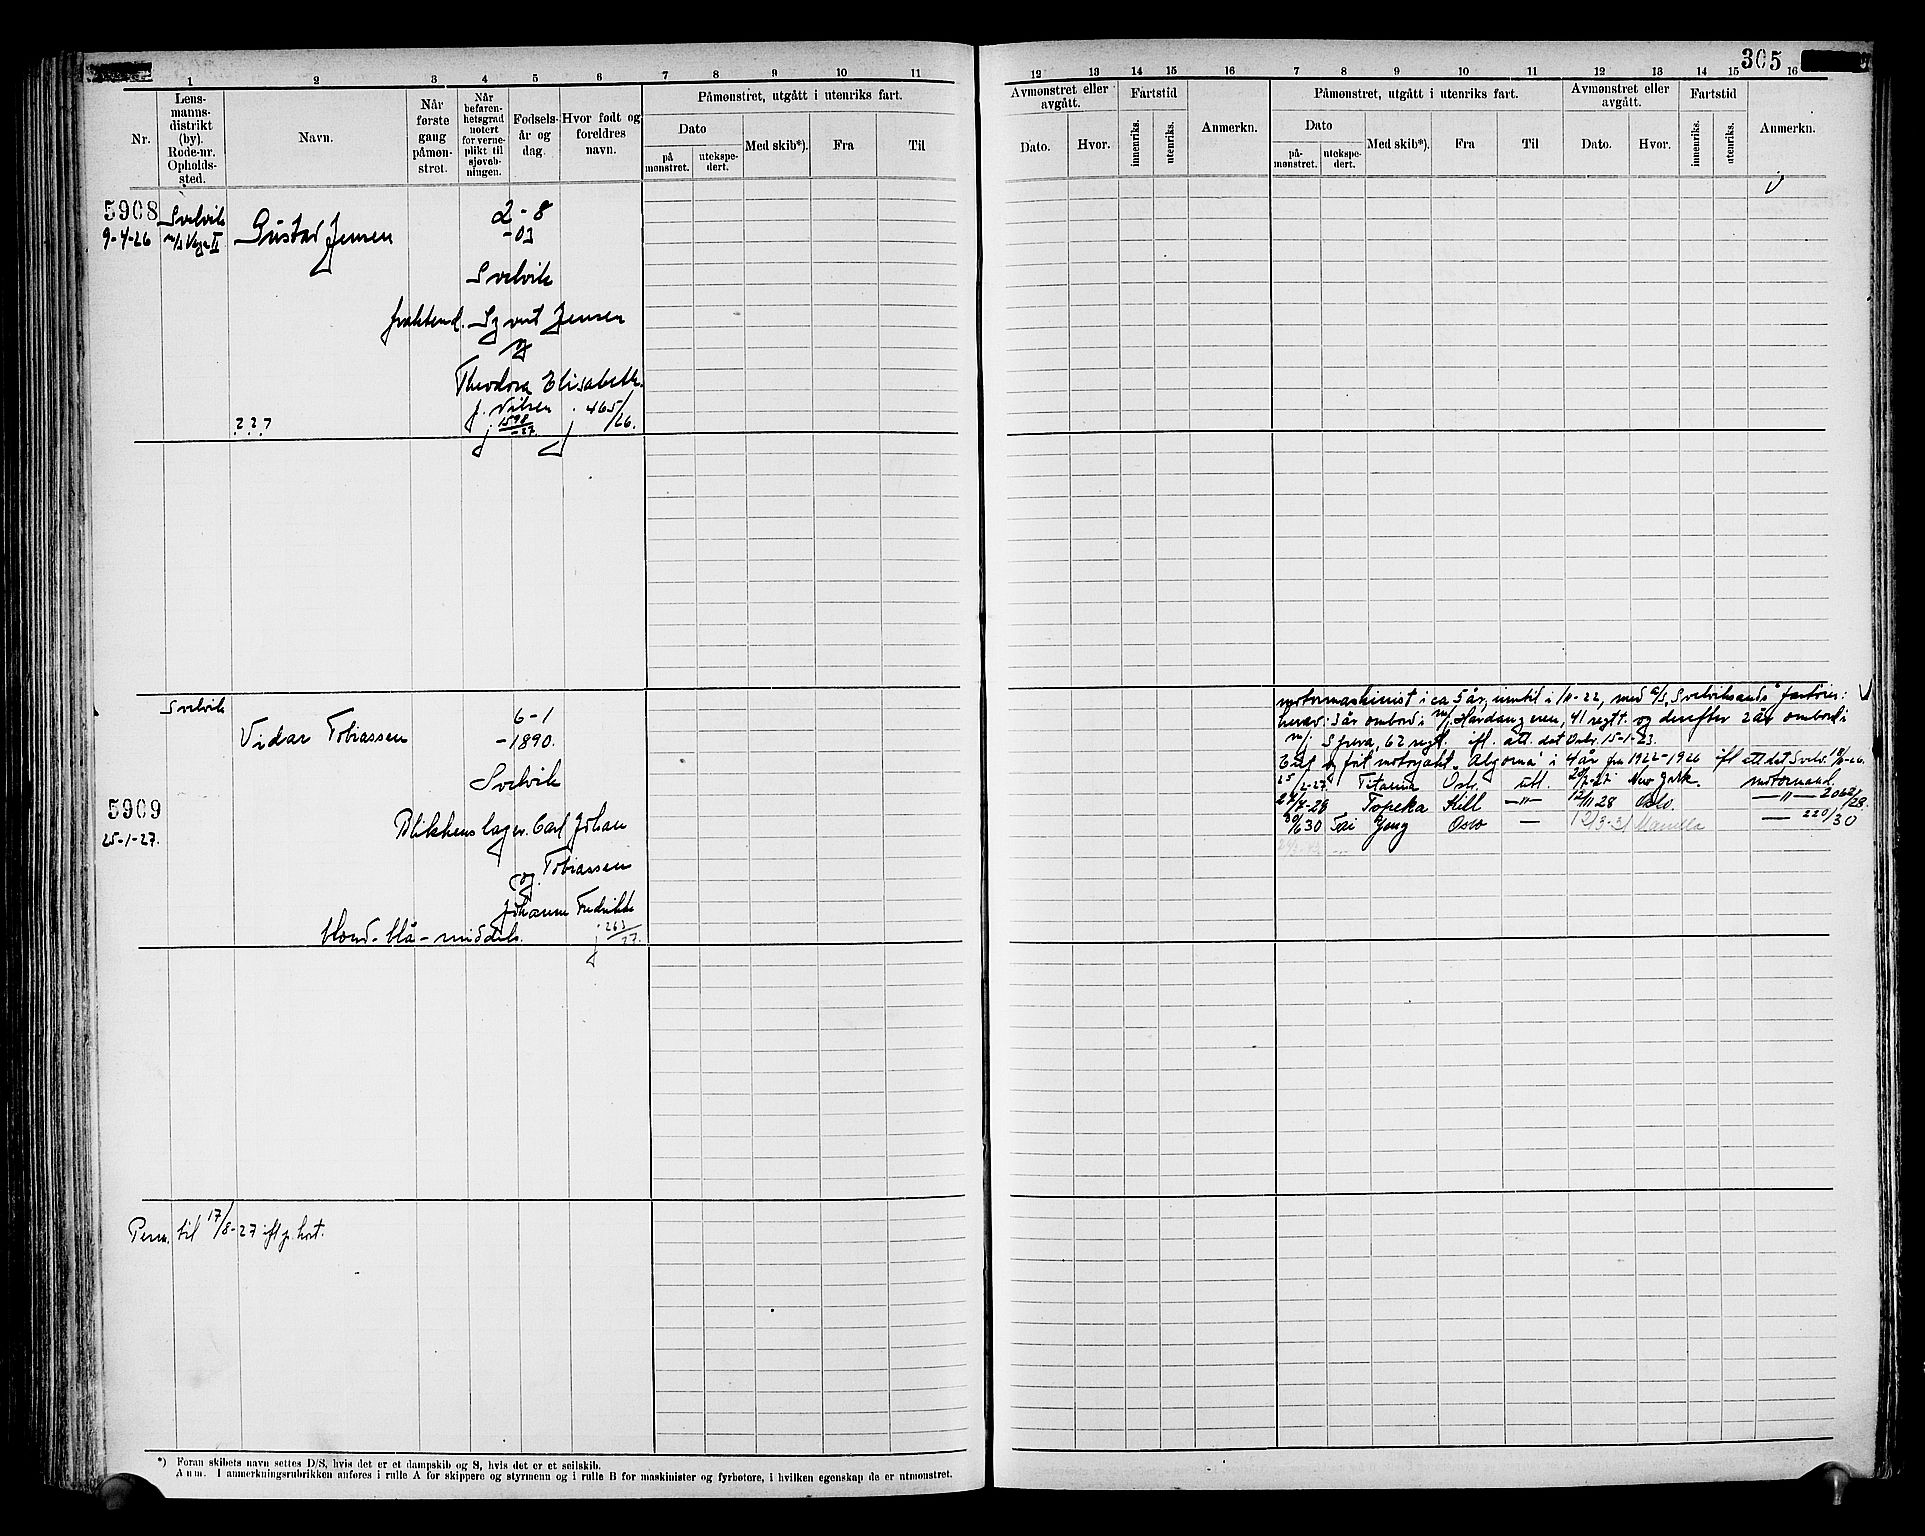 305
1 2 3 4 5 6 7 8 9 10 11
Nr.
Lens-
manns-
distrikt
(by).
Rode-nr.
Opholds-
sted.
Navn.
Når
første
gang
påmøn-
stret.
Når
befaren-
hetsgrad
notert
for verne-
plikt til
sjøvæb-
ningen.
Fødsels-
år og
dag.
Hvor født og
foreldres
navn.
Påmønstret, utgått i utenriks fart.
Dato
på
mønstret.
utekspe-
dert.
Med skib*).
Fra
Til
5908
9-4-26
Svelvik
Gustav Jensen
2-8
-03
Svelvik
Jensen
og
Theodora Elisabeth
f. Nilsen
465/26.
1598/-27
227
Svelvik
Vidar Tobiassen
6-1
-1890.
Svelvik
5909
25-1-27.
Blikkenslager Carl Johan
og Tobiassen
Johanne Fredrikke
blond - blå - middels.
263/27.
Perm. til 17/8-27 ifl. p. kort.
*) Foran skibets navn settes D/S, hvis det er et dampskib og S, hvis det er et seilskib.
Anm. I anmerkningsrubrikken anføres i rulle A for skippere og styrmenn og i rulle B for maskinister og fyrbøtere, i hvilken egenskap de er utmønstret.
12 13 14 15 16 7 8 9 10 11 12 13 14 15 16
Avmønstret eller
avgått.
Dato.
Hvor.
Fartstid
innenriks.
utenriks.
Anmerkn.
Påmønstret, utgått i utenriks fart.
Dato
på-
mønstret.
utekspe-
dert.
Med skib*).
Fra
Til
Avmønstret eller
avgått.
Dato.
Hvor.
Fartstid
innenriks.
utenriks.
Anmerkn.
motormaskinist i ca 5 år, inntil i 10-22, med Svelviksands fartøier:
herav: 3 år ombord i m/j Hardangeren, 41 regtt. og derefter 2 år ombord i
m/j. 62 regt. ifl. att. dat 15-1-23.
motorjakt "Algorma" i 4 år fra 1922-1926 ifl att dat Svelv. 18/-26.
25/2-27. Titania Oslo utl. New York. motormand.
27/7-28 Topeka Kiel —"— 12/11 28 Oslo. —"— 2062/28.
30/6 30 Tai Yang Oslo — 12/3-31 Manilla — 220/30